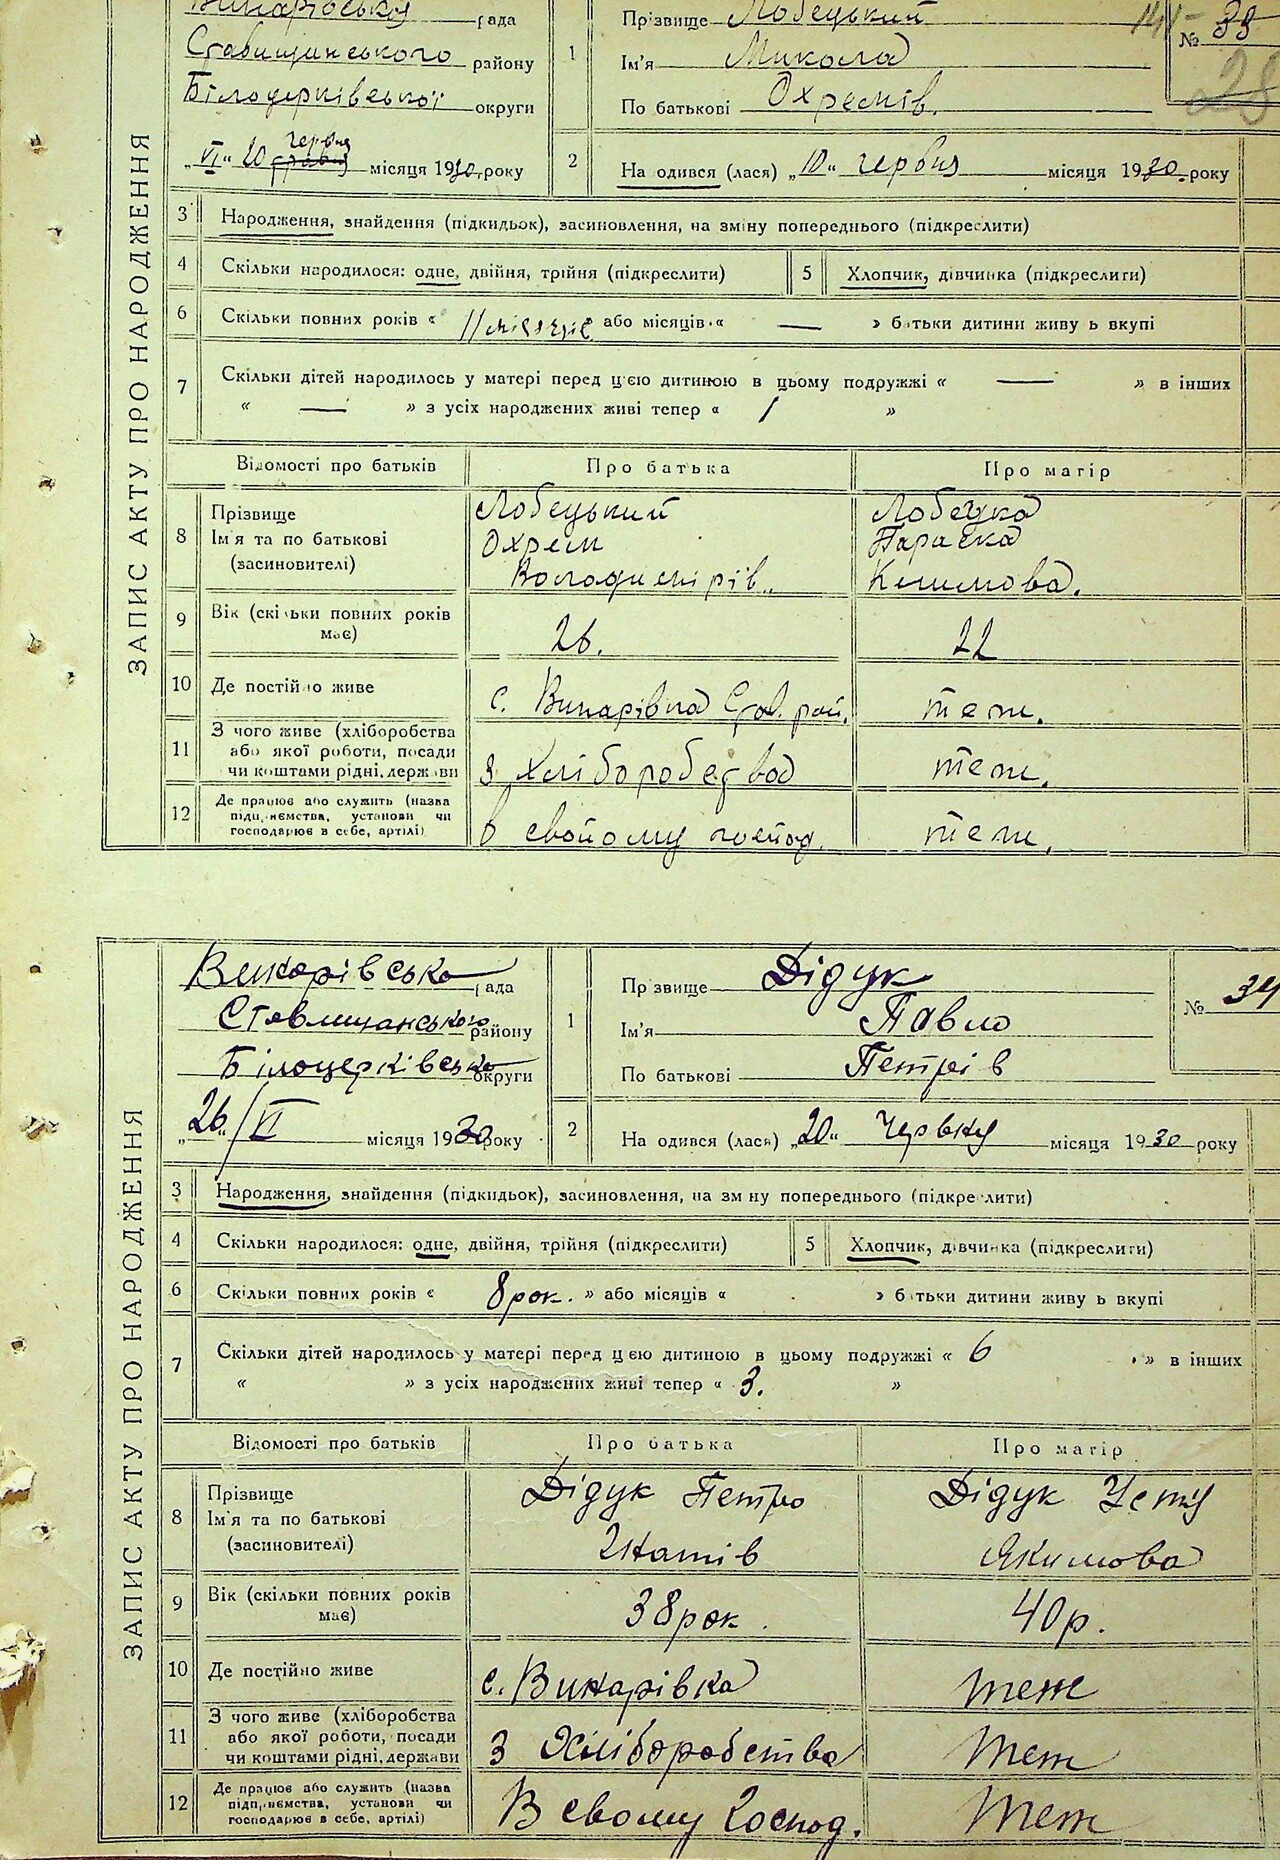 ЗАПИС АКТУ ПРО НАРОДЖЕННЯ
Винарівська рада
Ставищинського району
Білоцерківської округи
„VI“ 20 травня червня місяця 1930 року
1
Прізвище Лобецький
Ім'я Микола
По батькові Охремів.
№ 33
28
2
На одився (лася) „10“ червня місяця 1930. року
3 Народження, знайдення (підкидьок), засиновлення, на зміну попереднього (підкреслити)
4 Скільки народилося: одне, двійня, трійня (підкреслити) 5 Хлопчик, дівчинка (підкреслити)
6 Скільки повних років « 11 місяців або місяців « — » батьки дитини живуть вкупі
7 Скільки дітей народилось у матері перед цією дитиною в цьому подружжі « — » в інших
« — » з усіх народжених живі тепер « 1 »
Відомості про батьків Про батька Про матір
8 Прізвище Лобецький Лобецка
Ім'я та по батькові Охрем Параска
(засиновителі) Володимирів. Климова.
9 Вік (скільки повних років має) 26. 22
10 Де постійно живе с. Винарівка Став. рай. теж.
11 З чого живе (хліборобства
або якої роботи, посади з Хлібороб­ства теж.
чи коштами рідні, держави
12 Де працює або служить (назва
підприємства, установи чи в свойому господ. теж.
господарює в себе, артілі)
ЗАПИС АКТУ ПРО НАРОДЖЕННЯ
Винарівська рада
Ставищанського району
Білоцерківська округи
„26“/VI місяця 1930 року
1
Прізвище Дідук
Ім'я Павло
По батькові Петрів
№ 34
2
На одився (лася) „20“ Червня місяця 1930 року
3 Народження, знайдення (підкидьок), засиновлення, на зміну попереднього (підкреслити)
4 Скільки народилося: одне, двійня, трійня (підкреслити) 5 Хлопчик, дівчинка (підкреслити)
6 Скільки повних років « 8 рок. » або місяців « » батьки дитини живуть вкупі
7 Скільки дітей народилось у матері перед цією дитиною в цьому подружжі « 6 » в інших
« » з усіх народжених живі тепер « 3. »
Відомості про батьків Про батька Про матір
8 Прізвище Дідук Петро Дідук
Ім'я та по батькові
(засиновителі) Гнатів Якимова
9 Вік (скільки повних років має) 38 рок. 40 р.
10 Де постійно живе с. Винарівка теж
11 З чого живе (хліборобства
або якої роботи, посади З Хліборобства теж
чи коштами рідні, держави
12 Де працює або служить (назва
підприємства, установи чи В свому Господ. теж
господарює в себе, артілі)